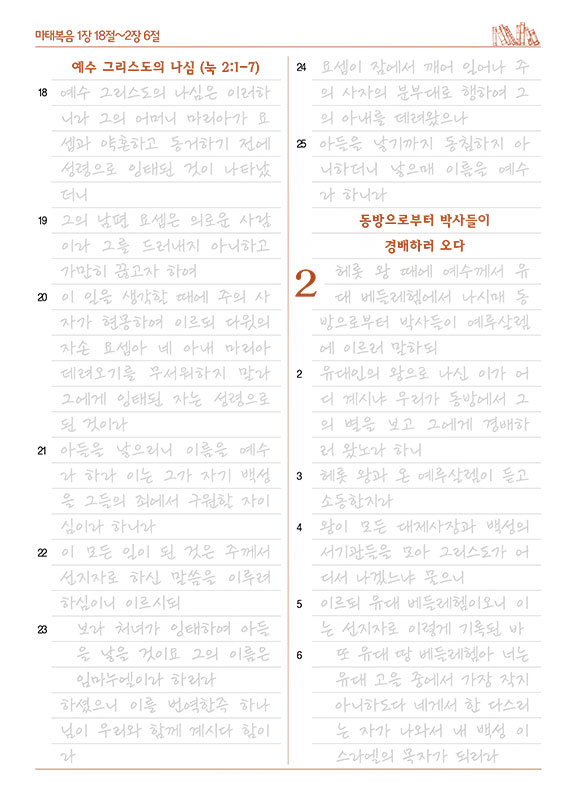 마태복음 1장 18절~2장 6절
예수 그리스도의 나심 (눅 2:1-7)
18 예수 그리스도의 나심은 이러하
니라 그의 어머니 마리아가 요
셉과 약혼하고 동거하기 전에
성령으로 잉태된 것이 나타났
더니
19 그의 남편 요셉은 의로운 사람
이라 그를 드러내지 아니하고
가만히 끊고자 하여
20 이 일을 생각할 때에 주의 사
자가 현몽하여 이르되 다윗의
자손 요셉아 네 아내 마리아
데려오기를 무서워하지 말라
그에게 잉태된 자는 성령으로
된 것이라
21 아들을 낳으리니 이름을 예수
라 하라 이는 그가 자기 백성
을 그들의 죄에서 구원할 자이
심이라 하니라
22 이 모든 일이 된 것은 주께서
선지자로 하신 말씀을 이루려
하심이니 이르시되
23 보라 처녀가 잉태하여 아들
을 낳을 것이요 그의 이름은
임마누엘이라 하리라
하셨으니 이를 번역한즉 하나
님이 우리와 함께 계시다 함이
라
24 요셉이 잠에서 깨어 일어나 주
의 사자의 분부대로 행하여 그
의 아내를 데려왔으나
25 아들을 낳기까지 동침하지 아
니하더니 낳으매 이름을 예수
라 하니라
동방으로부터 박사들이
경배하러 오다
2 헤롯 왕 때에 예수께서 유
대 베들레헴에서 나시매 동
방으로부터 박사들이 예루살렘
에 이르러 말하되
2 유대인의 왕으로 나신 이가 어
디 계시냐 우리가 동방에서 그
의 별을 보고 그에게 경배하
러 왔노라 하니
3 헤롯 왕과 온 예루살렘이 듣고
소동한지라
4 왕이 모든 대제사장과 백성의
서기관들을 모아 그리스도가 어
디서 나겠느냐 물으니
5 이르되 유대 베들레헴이오니 이
는 선지자로 이렇게 기록된 바
6 또 유대 땅 베들레헴아 너는
유대 고을 중에서 가장 작지
아니하도다 네게서 한 다스리
는 자가 나와서 내 백성 이
스라엘의 목자가 되리라